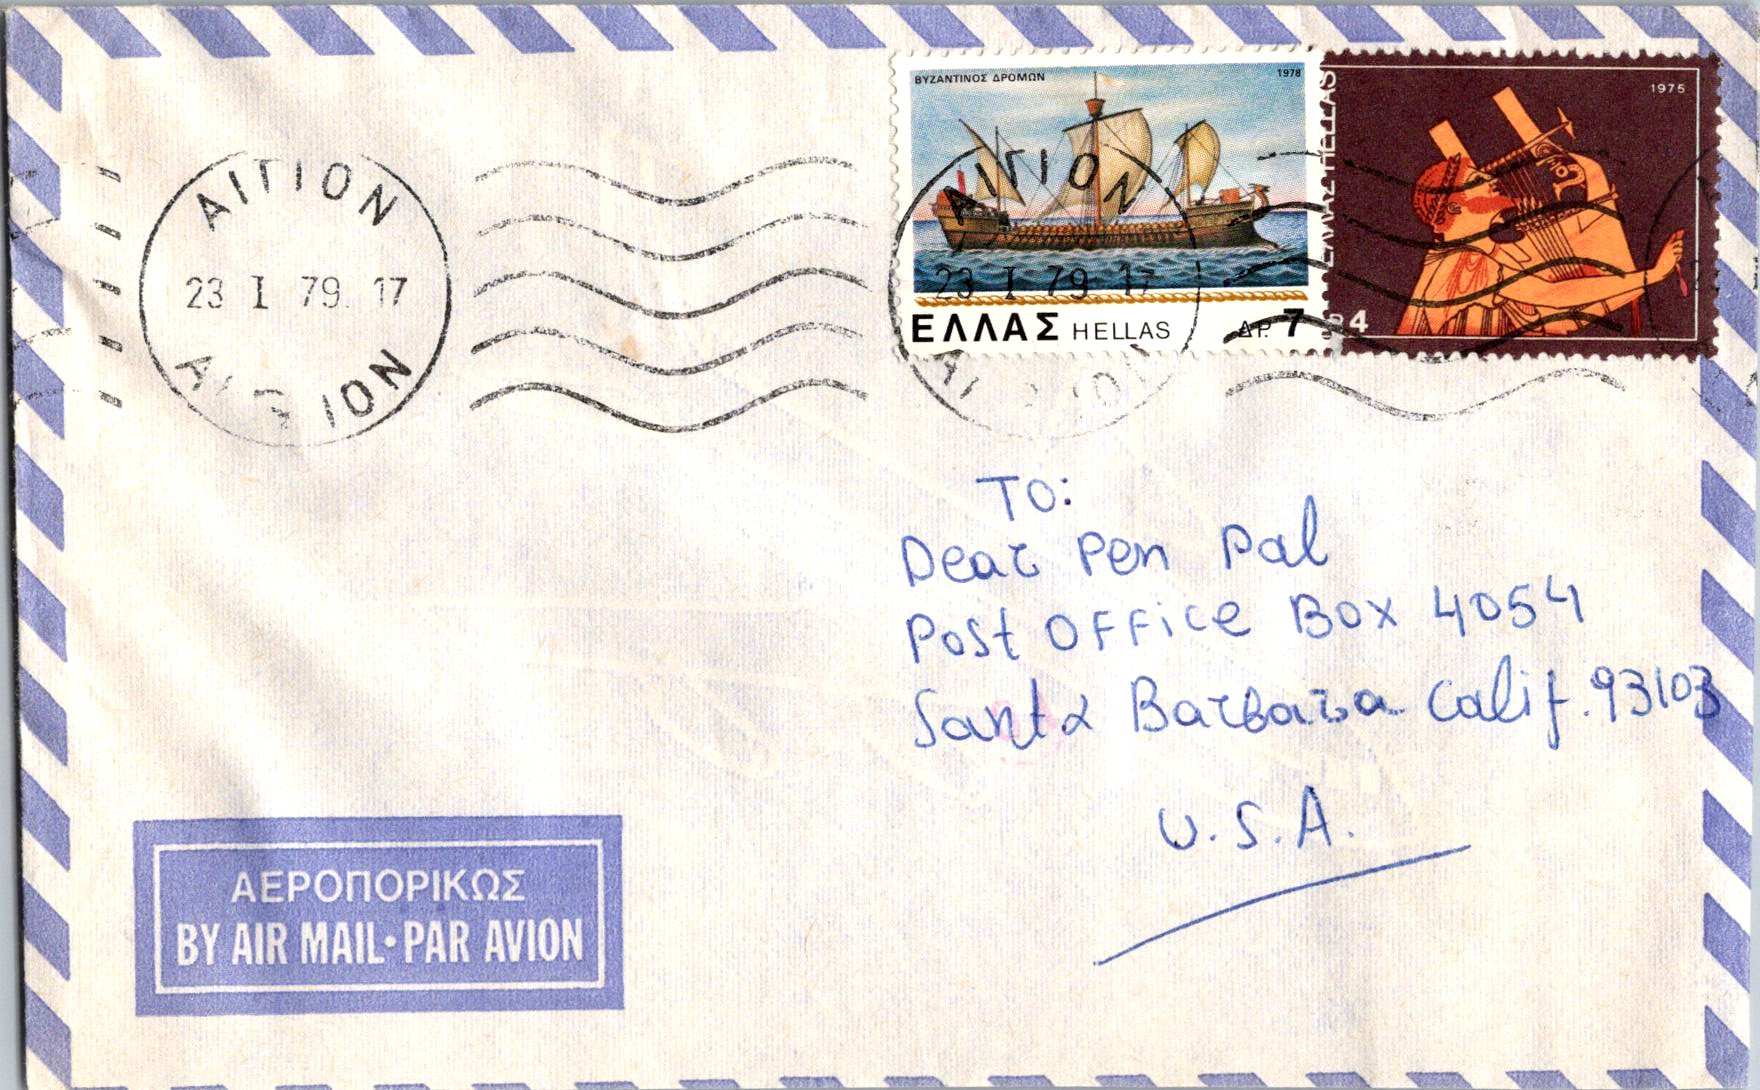 ΒΥΖΑΝΤΙΝΟΣ ΔΡΟΜΩΝ 1978
ΕΛΛΑΣ HELLAS ΔΡ. 7
1975
ΕΛΛΑΣ HELLAS
4
ΑΙΓΙΟΝ
23 I 79. 17
ΑΙΓΙΟΝ
23 I 79. 17
TO:
Dear Pen Pal
Post OFFice Box 4054
Santa Barbara Calif. 93103
U.S.A.
ΑΕΡΟΠΟΡΙΚΩΣ
BY AIR MAIL • PAR AVION